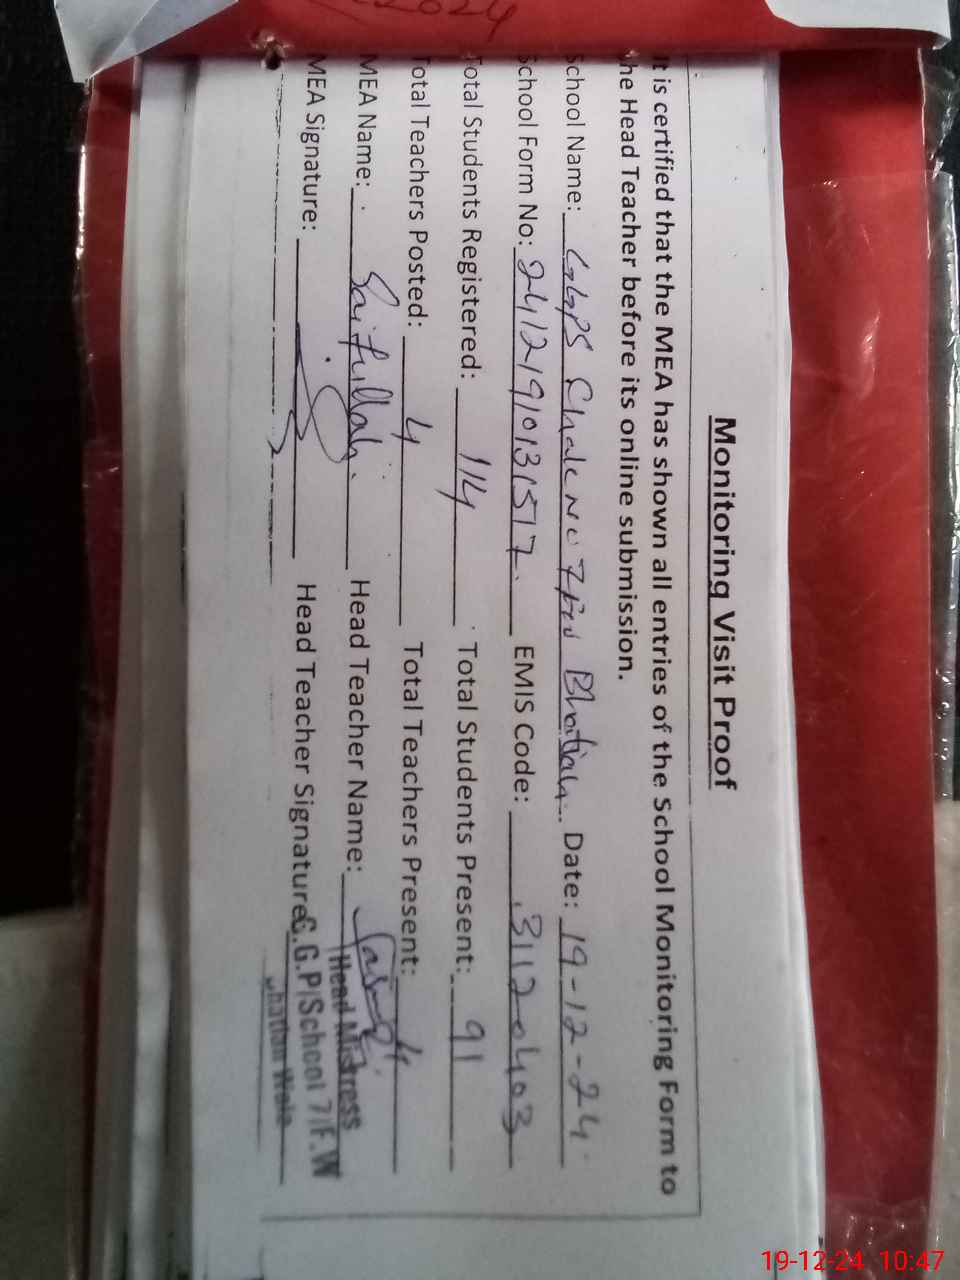 2024
Monitoring Visit Proof
It is certified that the MEA has shown all entries of the School Monitoring Form to
the Head Teacher before its online submission.
School Name: GGPS Chak No 7 Bhatian. Date: 19-12-24.
School Form No: 24121910131517. EMIS Code: 31120403
Total Students Registered: 114 Total Students Present: 91
Total Teachers Posted: 4 Total Teachers Present: 4
MEA Name: Saifullah. Head Teacher Name:
MEA Signature: Head Teacher Signature:
Head Mistress
G.G.P/School 7/F.W
19-12-24 10:47